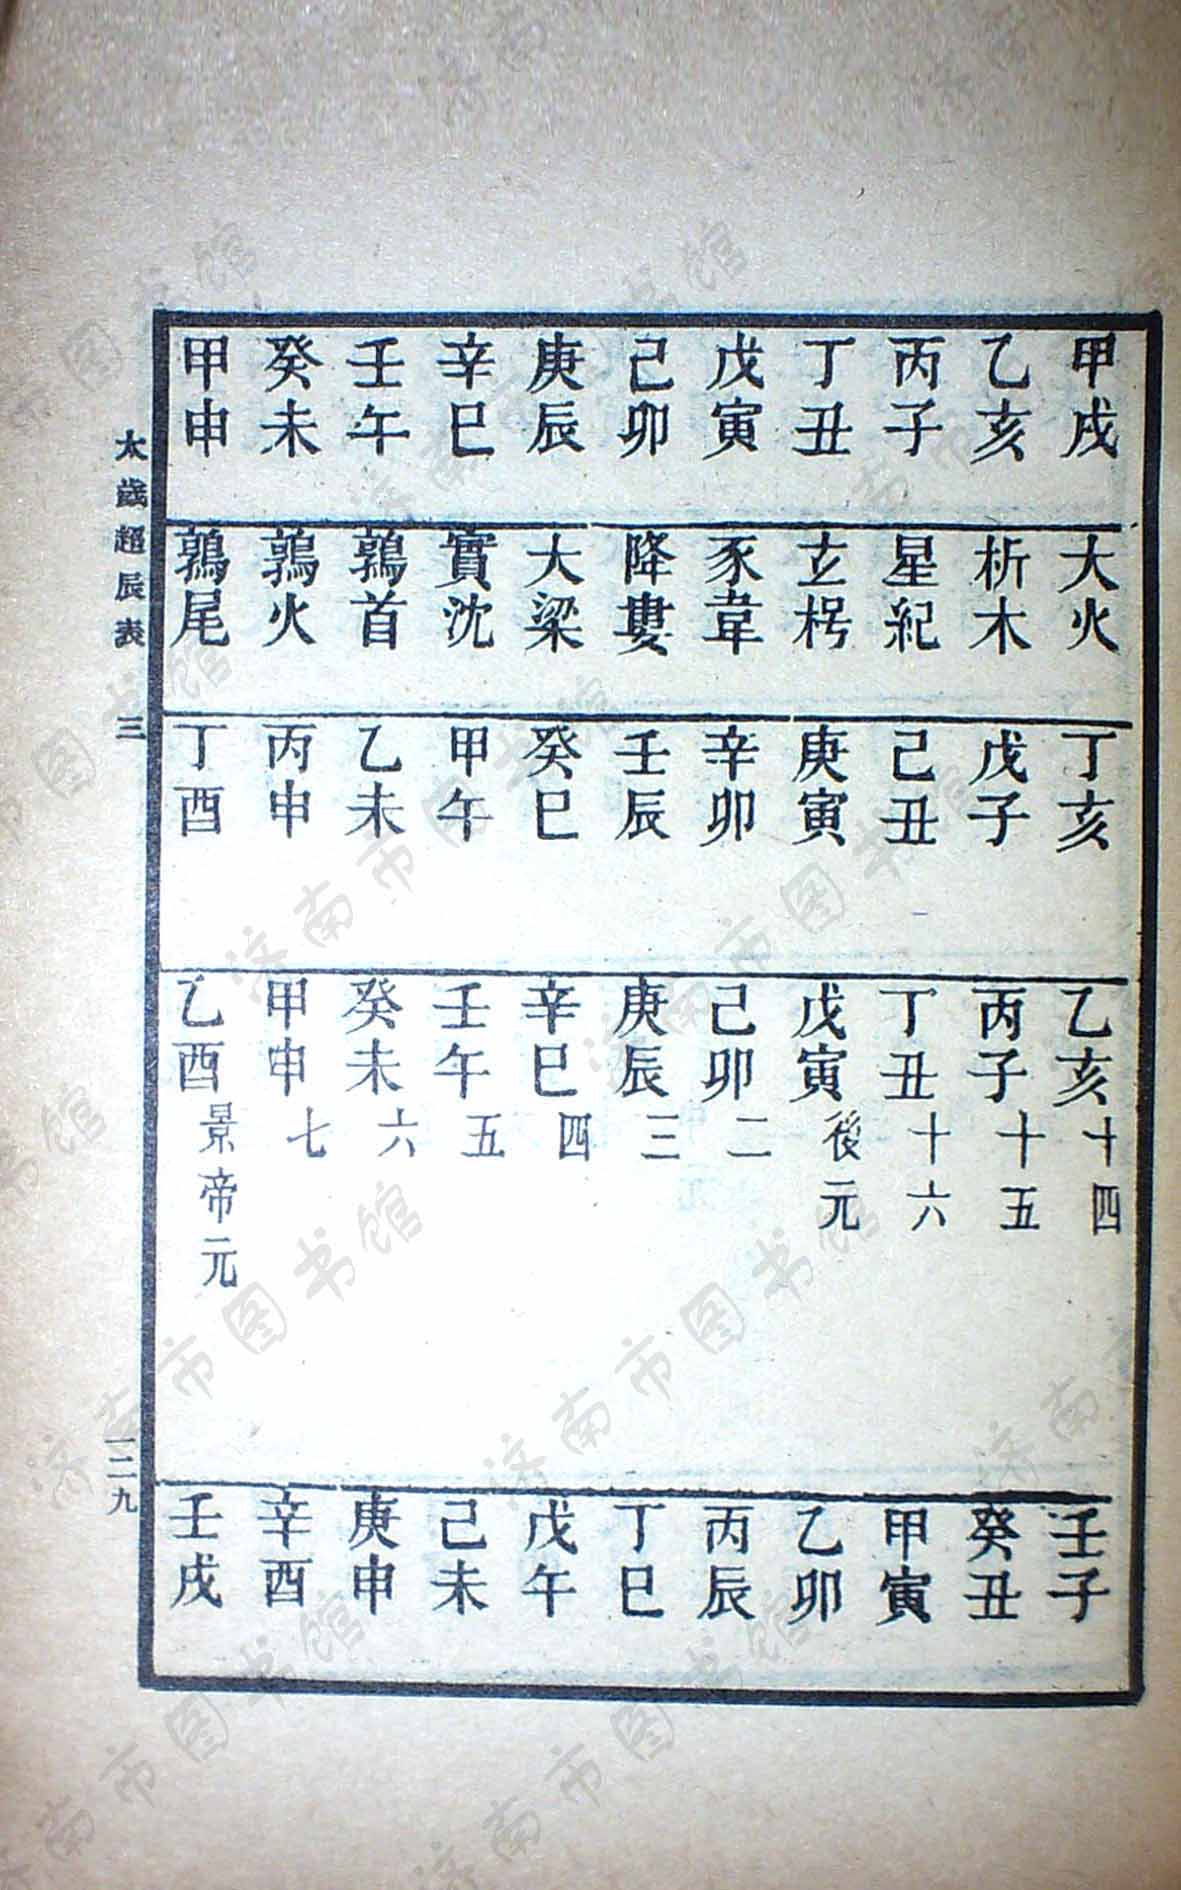 甲戌 乙亥 丙子 丁丑 戊寅 己卯 庚辰 辛巳 壬午 癸未 甲申
大火 析木 星紀 玄枵 豕韋 降婁 大梁 實沈 鶉首 鶉火 鶉尾
丁亥 戊子 己丑 庚寅 辛卯 壬辰 癸巳 甲午 乙未 丙申 丁酉
乙亥十四 丙子十五 丁丑十六 戊寅後元 己卯二 庚辰三 辛巳四 壬午五 癸未六 甲申七 乙酉景帝元
壬子 癸丑 甲寅 乙卯 丙辰 丁巳 戊午 己未 庚申 辛酉 壬戌
太歲超辰表 三 一二九
济南市图书馆